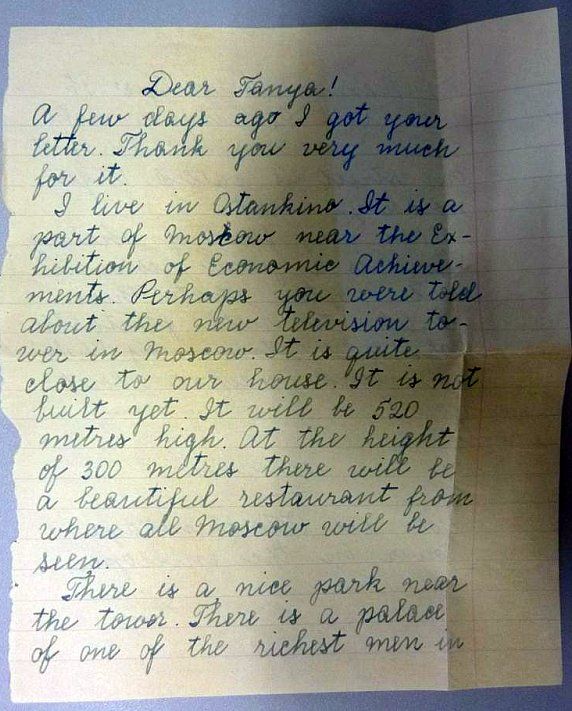 Dear Tanya!
A few days ago I got your
letter. Thank you very much
for it.
I live in Ostankino. It is a
part of Moscow near the Ex-
hibition of Economic Achieve-
ments. Perhaps you were told
about the new television to-
wer in Moscow. It is quite
close to our house. It is not
built yet. It will be 520
metres high. At the height
of 300 metres there will be
a beautiful restaurant from
where all Moscow will be
seen.
There is a nice park near
the tower. There is a palace
of one of the richest men in